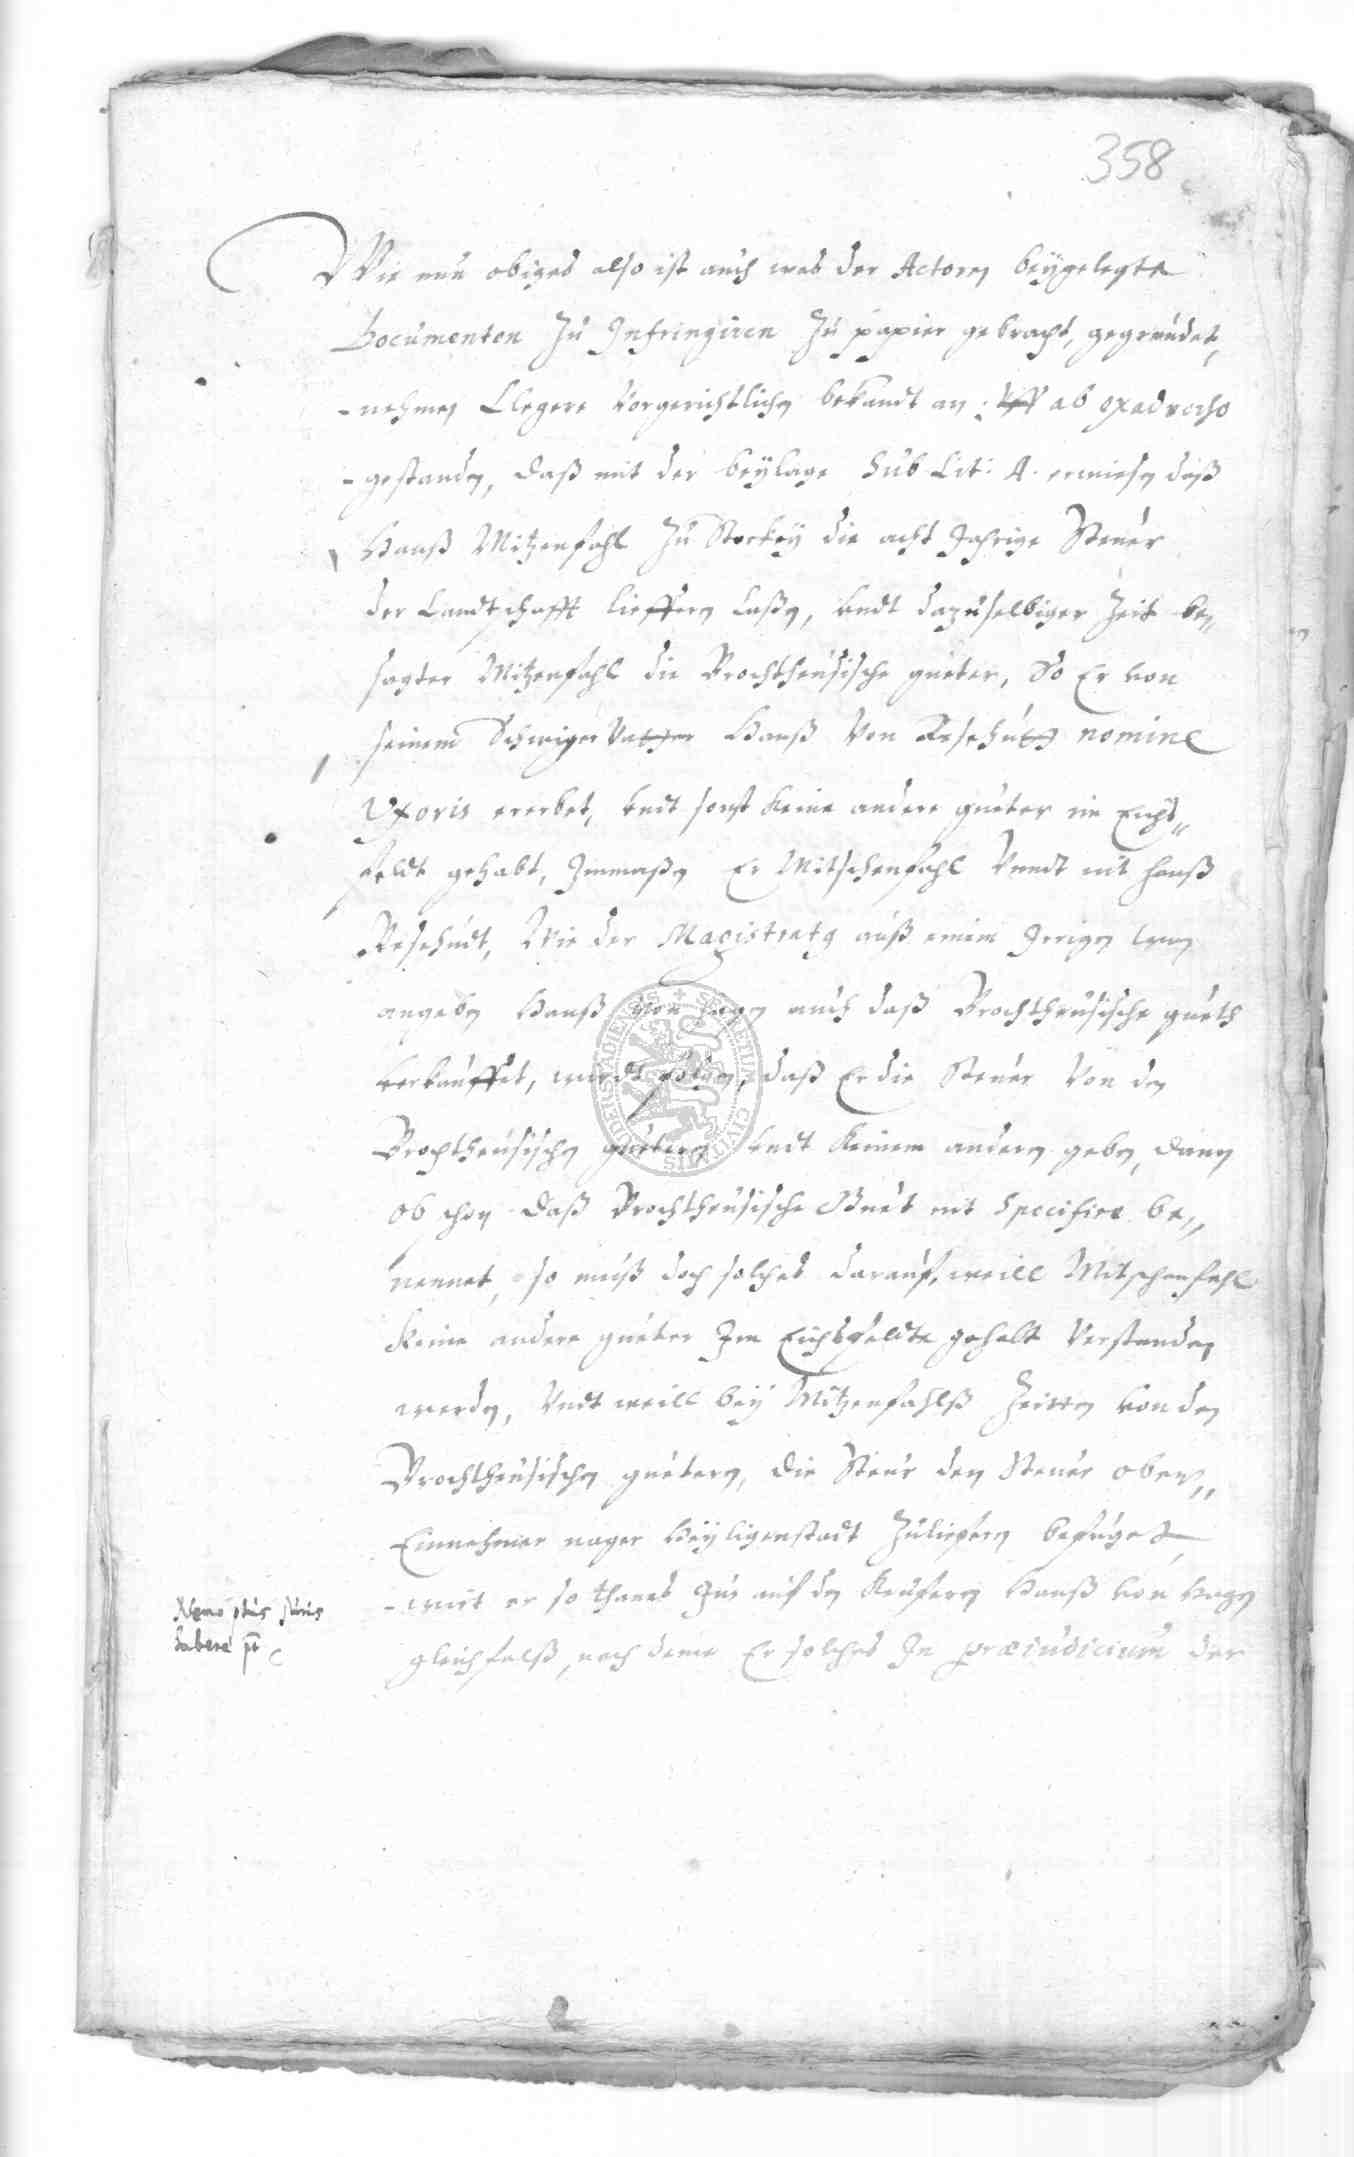 358
Wie nun obiges also ist auch was der Actoren beygelegte
Documenten Zu Infringiren Zu papier gebracht, gegründet,
nehmen Clegere Vorgerichtlichen bekandt an: ab exadverso
gestanden, daß mit der beylage Sub Lit: A. erwiesen daß
Hanß Mitzenfahl Zu Stockey die acht Jahrige Steuer
der Landtschafft lieffern laßen, undt dazuselbiger Zeit be„
sagter Mitzenfahl die Brochtheusische gueter, So Er von
seinem Schwiger Vatter Hanß Von nomine
Uxoris ererbet, undt sonst Keine andere gueter im Eichs„
feldt gehabt, Immaßen Er Mitschenfahl Unndt nit Hanß
Wie der Magistratg auß einem Irrigen
angeben Hanß Von Hagen auch daß Brochtheusische gueth
verkauffet, daß Er die Steuer Von den
Brochtheusischen guetern undt Keinem andern geben, dann
ob schon daß Brochtheusische Guet nit Specifice be„
nennet, so muß doch solches darauf, weill Mitschenfahl
Keine andere gueter Im Eichsfeldte gehabt Verstanden
werden, Undt weill bey Mitzenfahlß Zeitten von den
Brochtheusischen guetern, die Steur den Steuer ober„
Einnehmer nager Heyligenstadt Zuliefern befuget,
wirt er so thanes Jus auf den Keufern Hanß von Hagen
gleichfalß, nach deme Er solches In præiudicium der
Nemo plus juris
habere pt
SECRETUM CIVITATIS DUDERSTADIENSIS